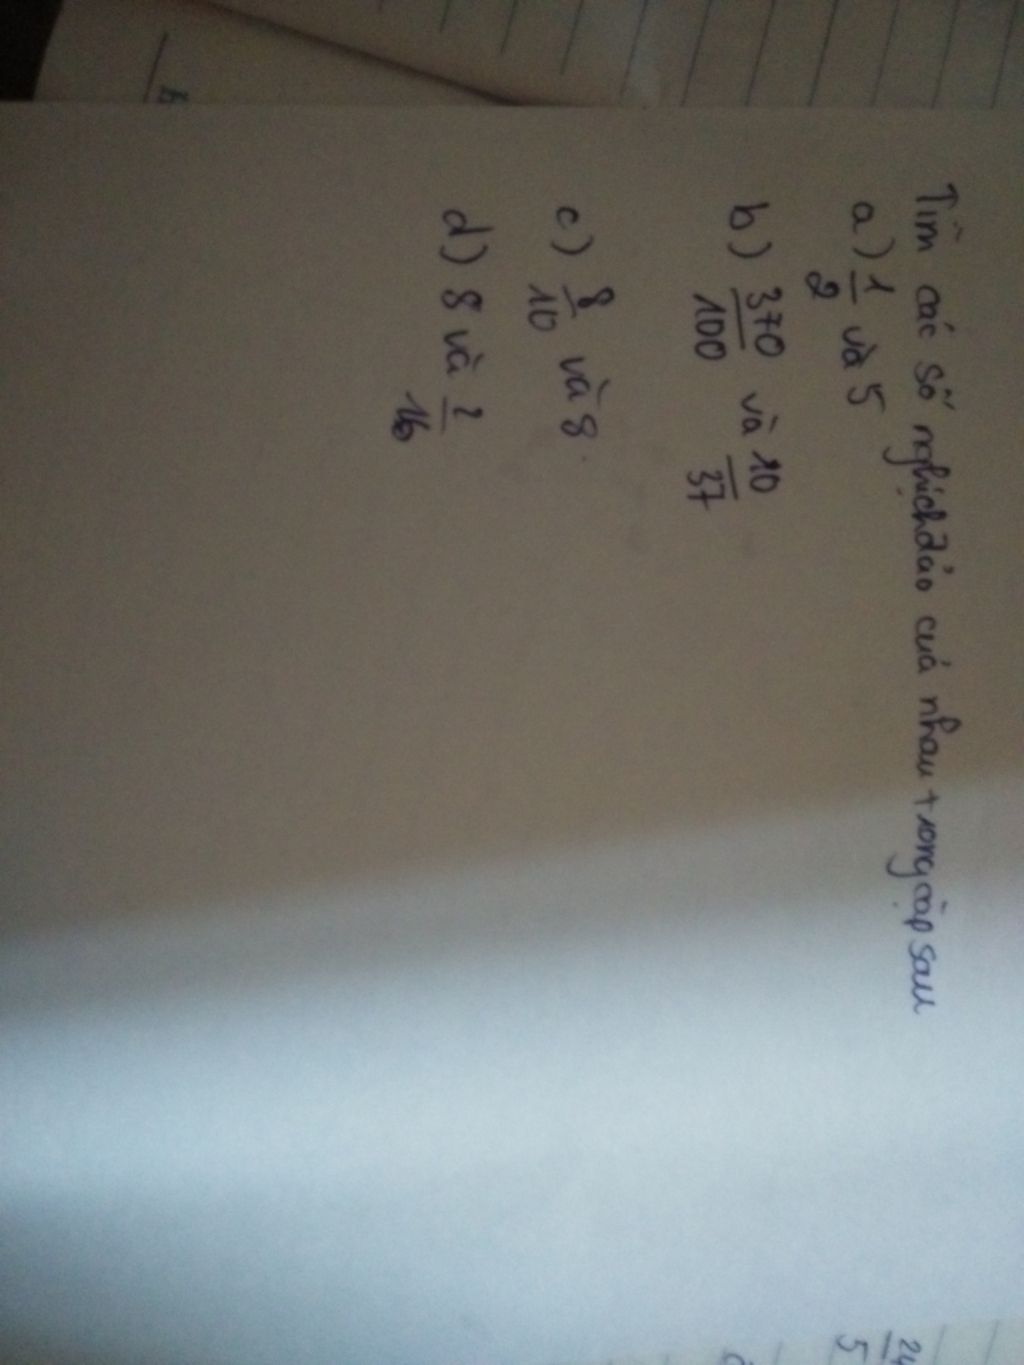 Tìm các số nghịch đảo của nhau trong cặp sau
a) 1/2 và 5
b) 370/100 và 10/37
c) 8/10 và 8.
d) 8 và 2/16
24
5